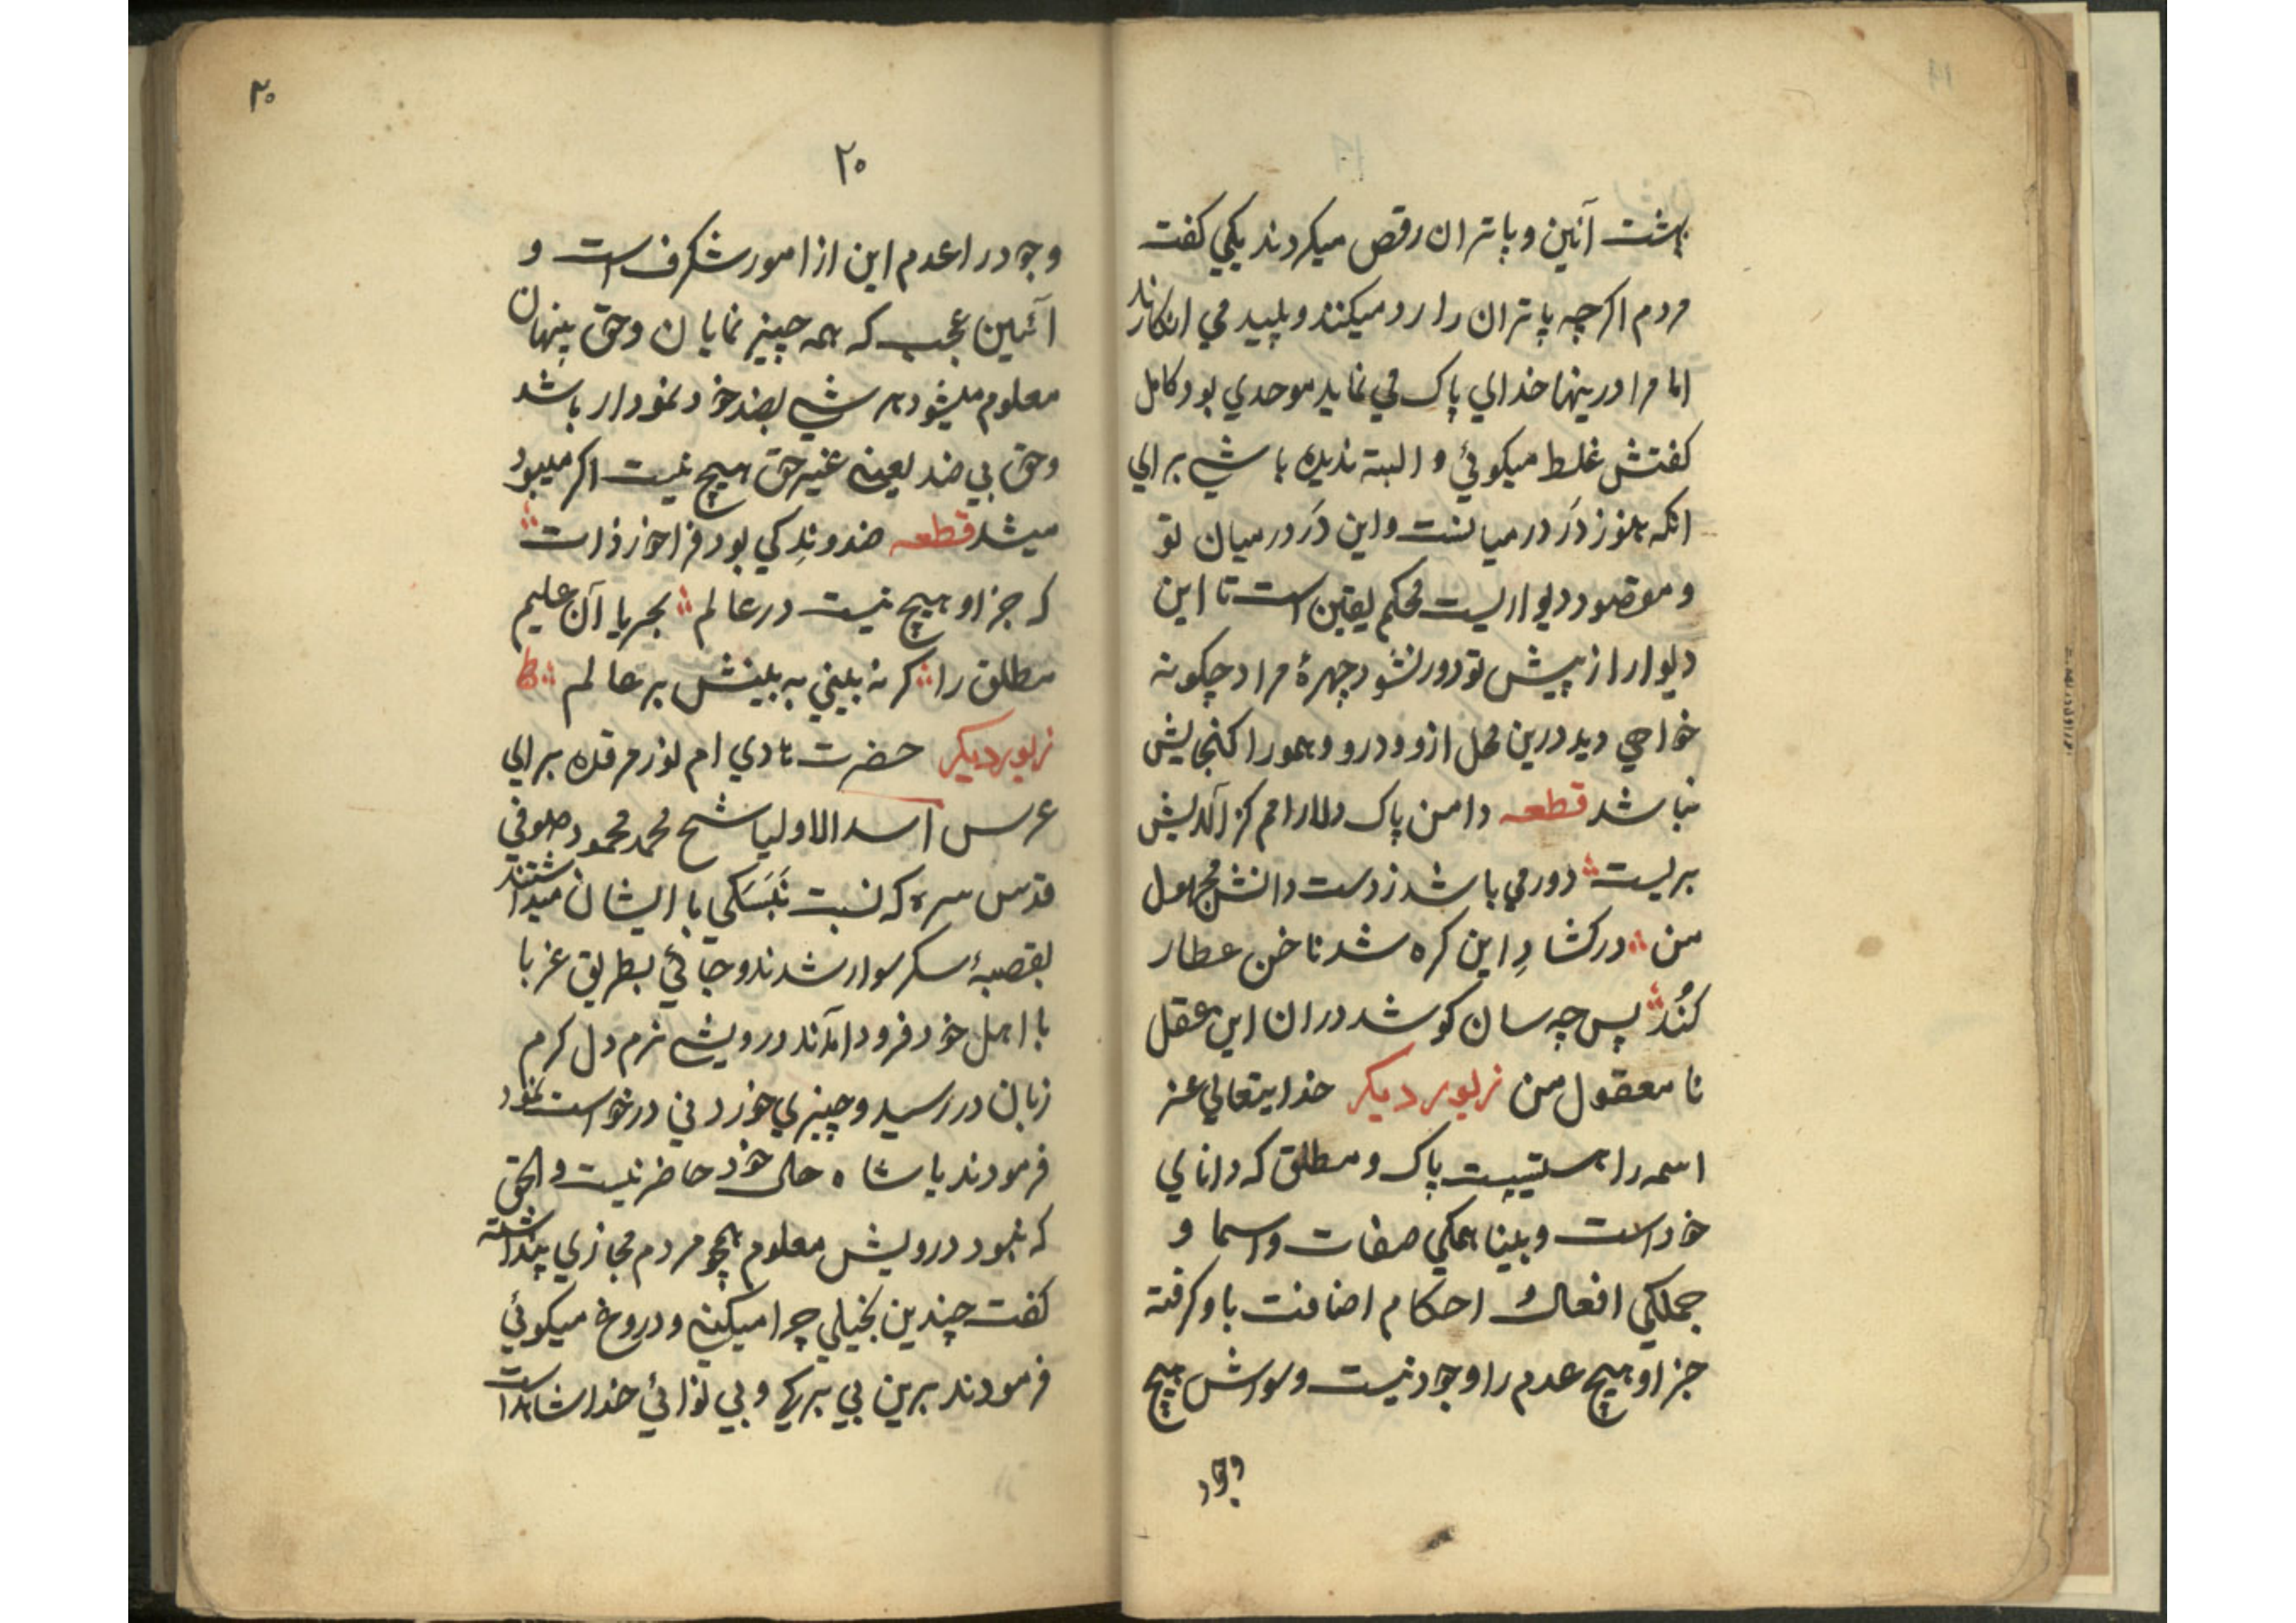 بهشت آئین و پاتران رقص میکردند یکي کفت
مردم اکرچه پاتران را رد میکنند و پلید مي انکارند
اما مرا درینها خداي پاک مي نماید موحدي بود کامل
کفتش غلط میکوئي و البته ندیده باشي براي
انکه هنوز دَر درمیانست و این دَر درمیان تو
و مقصود دیواریست محکم یقین است تا این
دیوار از پیش تو دور نشود چهرهٔ مراد چکونه
خواهي دید درین محل ازو و درو و همورا کنجایش
نباشد قطعه دامن پاک دلارامم کز آلایش
بریست دور مي باشد ز دست دانش مجهول
من در کشادِ این کره شد ناخن عطار
کُند پس چه سان کوشد دران این عقل
نامعقول من زیور دیکر خدایتعالي عز
اسمه را هستییست پاک و مطلق که داناي
خود است و بینا همکي صفات و اسما و
جملکي افعال و احکام اضافت باو کرفته
جز او هیچ عدم را وجود نیست و سواش هیچ
وجود
۲۰
۲۰
وجود را عدم این از امور شکرف است و
آئین عجب که همه چیز نمایان و حق پنهان
معلوم میشود هر شي بضد خود نمودار باشد
و حق بي ضد یعینه غیر حق هیچ نیست اکر میبود
میشد قطعه ضد و ندِ کي بود فراخور ذات
که جز او هیچ نیست در عالم بجریا آن علیم
مطلق را کر نه بیني به بینش بر عالم ط
زیور دیکر حضرت هادي ام نور مرقده براي
عرس اسد الاولیا شیخ محمد محمود صوفي
قدس سره که نسبت نَبَسَکي با ایشان میداشتند
بقصبهٔ سکر سوار شدند و جائي بطریق غربا
با اهل خود فرود آمدند درویشي نرم دل کرم
زبان در رسید و چیزي خوردني درخواست نمود
فرمودند یا شاه حال خود حاضر نیست و الحق
که نبود درویش معلوم همچو مردم مجازي پنداشته
کفت چندین بخیلي چرا میکني و دروغ میکوئي
فرمودند برین بي برکي و بي نوائي خدا شاهد است